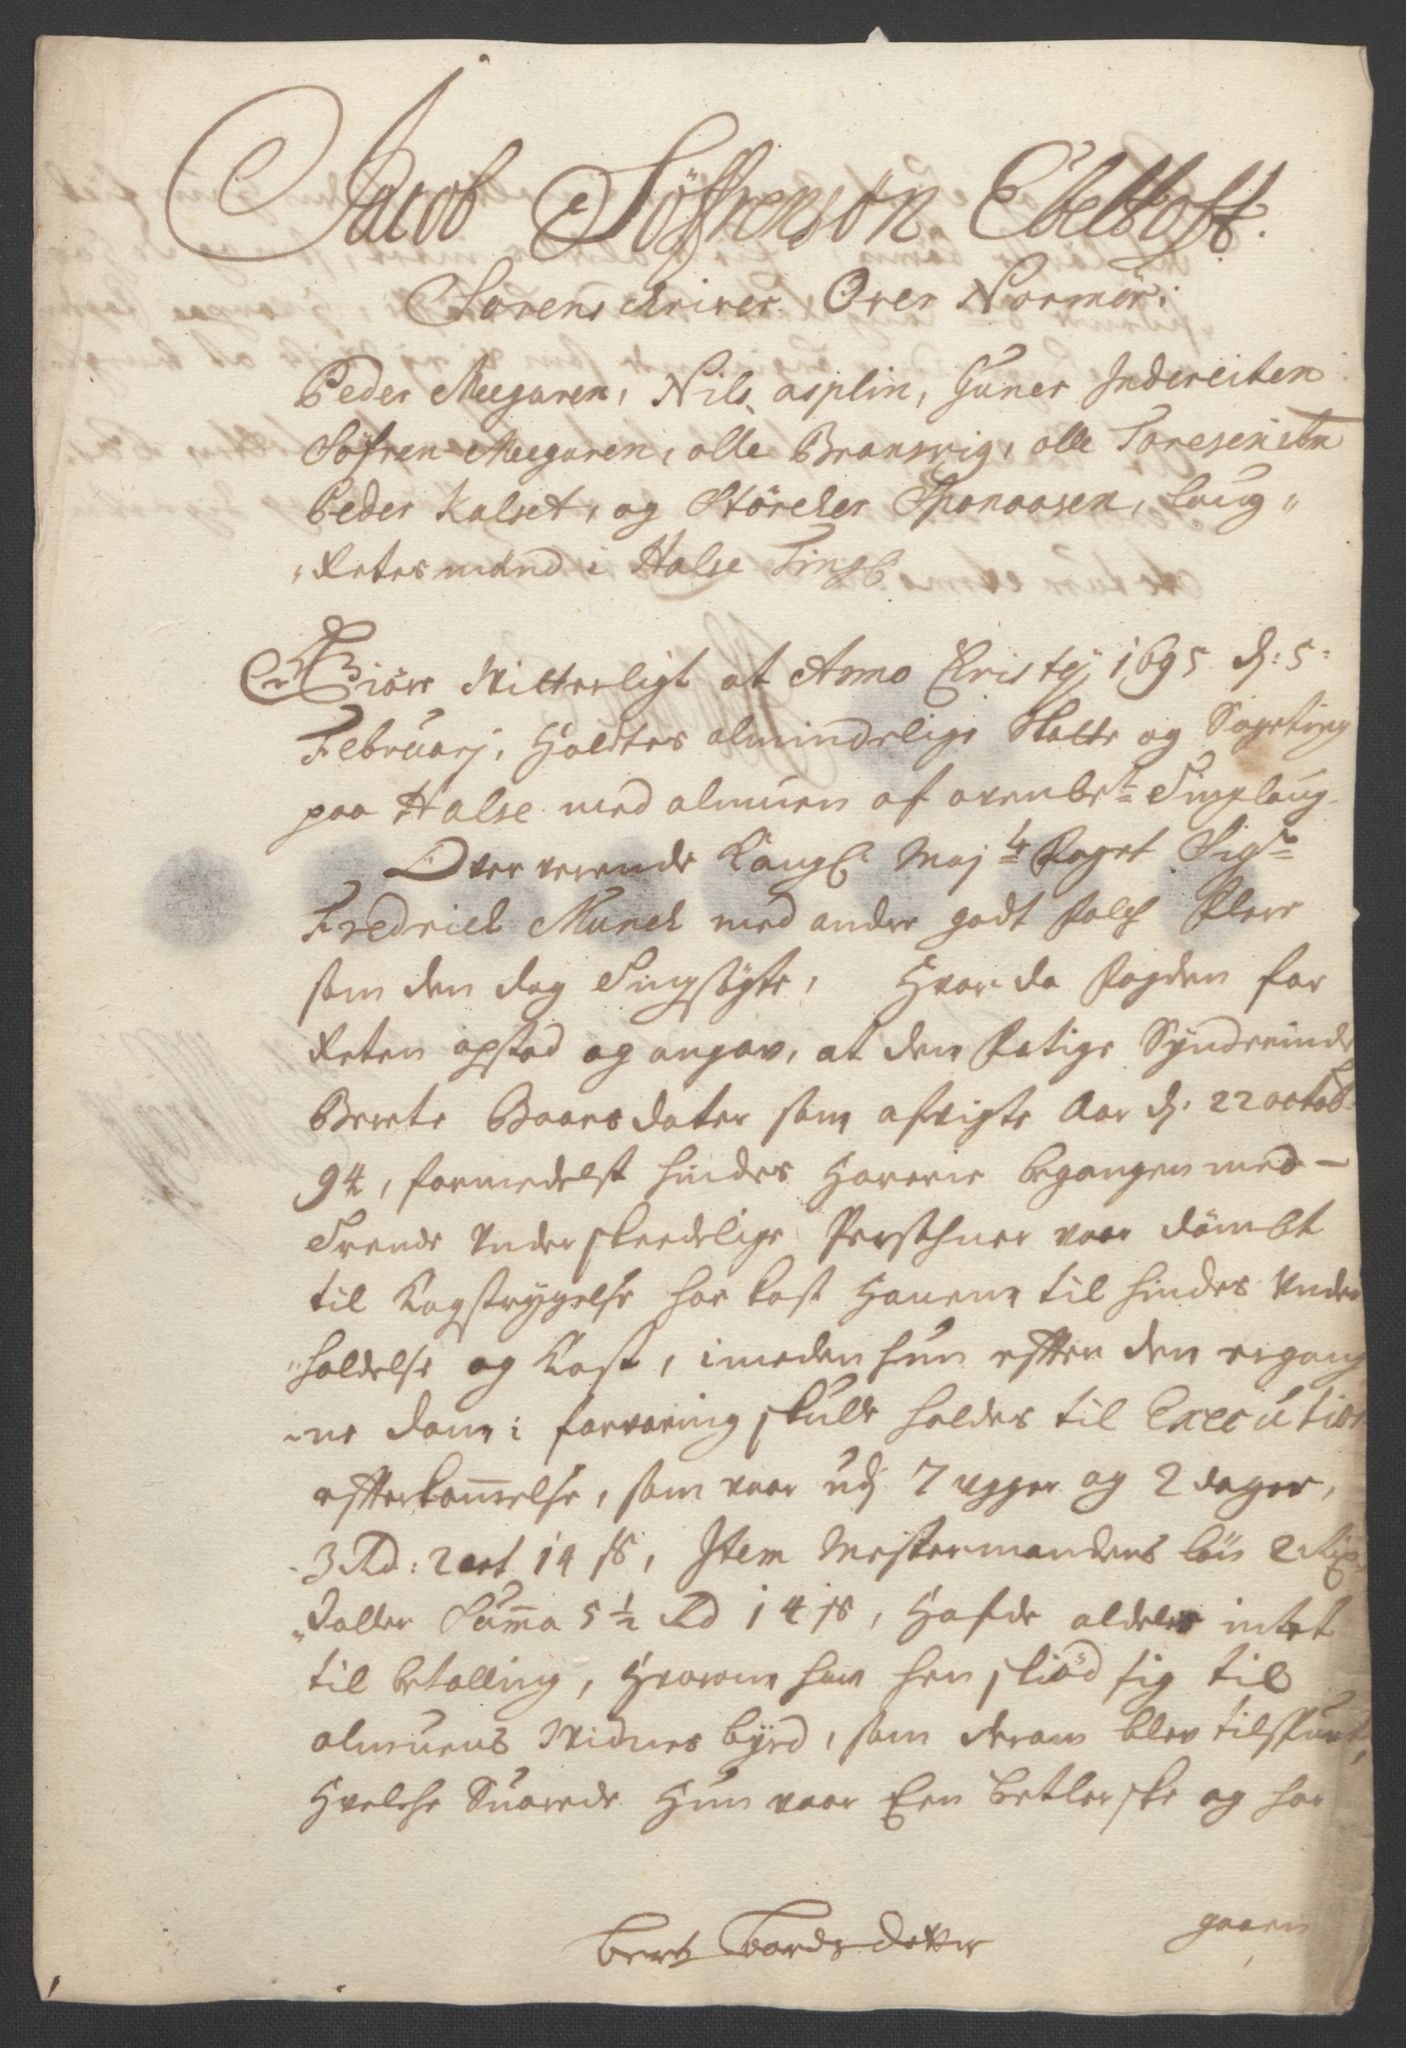 Jacob Söffrenson Ebeltoft.
Sorenskriver Over Normör:
Peder Meegaren, Nils asplin, Guner Indereiten
Söfren Meegaren, olle Bransvig, olle Toresen
Peder Kalset, og Störcker Sponaasen, laug„
„Retesmend i Halse Ting
Giöre Witterligt at Anno Cristÿ 1695 d: 5:
Februarj, Holdtes almindelige Skatte og Sageting
paa Halse med almuen af ovenbete Tinglaug.
Oververende Kongl: Maj:ts Foget Sigr
Fredrich Munch med andre godt Folch Flere
som den dag Tingsögte, Hvor da Fogden for
Reten opstod og angav, at den Fatige Synderinde
Berete Baarsdater som afvigte Aar d. 22 octob
94, formedelst hindes Horerie begangen med
Trende Underskeedelige Persohner vaar dömbt
til Kagstrygelse har kost Hanem til hindes Under
„holdelse og Kost, imeden hun efter den ergang
„ne dom i forvaring skulle holdes til Execution
efterkommelse, som vaar udj 7 ugger og 2 dager,
3 Rd: 2 ort 14 ß, Item Mestermandens lön 2 Rix
„daller Summa 5 ½ Rd 14 ß, Hafde aldeles intet
til betalling, Hvorom han hen skiöd sig til
almuens Widnes byrd, som derom blev tilspurt,
Hvelche Suarede Hun vaar Een betlerske og har
gaaen
Beret Bordsdatter